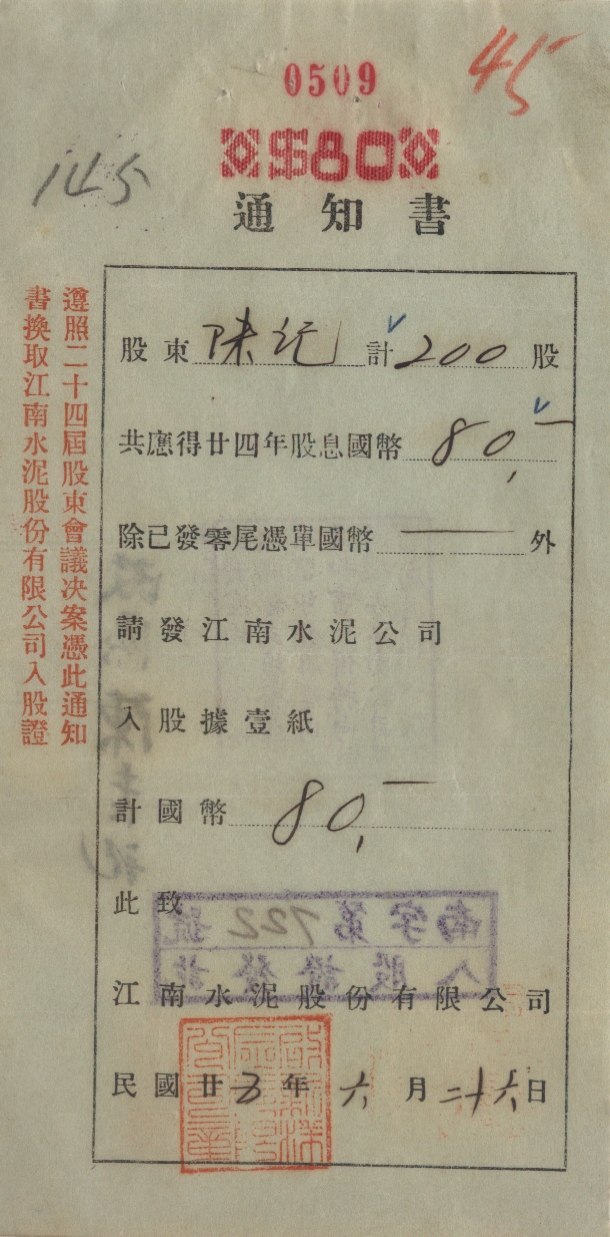 0509
45
$80
145
通知書
遵照二十四屆股東會議決案憑此通知
書換取江南水泥股份有限公司入股證
股東 陳記 計 200 股
共應得廿四年股息國幣 80,一
除已發零尾憑單國幣 — 外
請發江南水泥公司
入股據壹紙
計國幣 80,一
此致
南字第722號
入股證發訖
江南水泥股份有限公司
民國廿五年六月二十六日